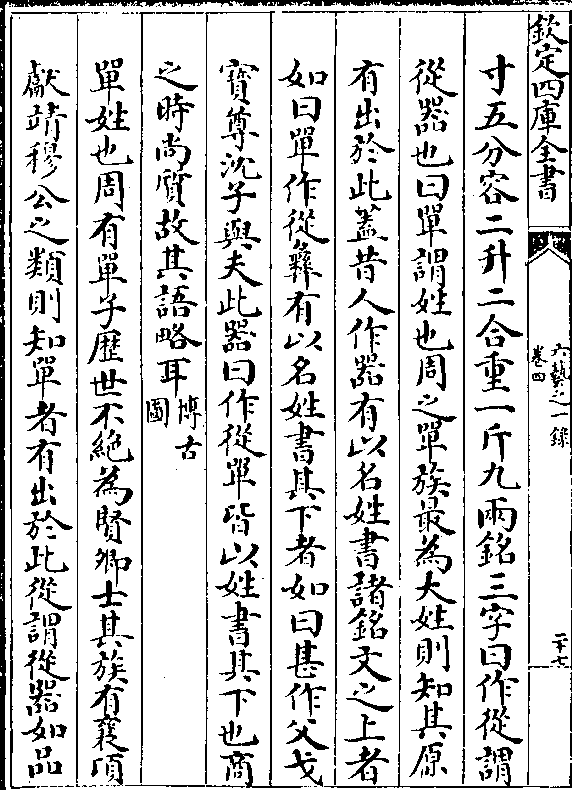 欽定四庫全書
六藝之一録
卷四
二十七
寸五分容二升二合重一斤九兩銘三字曰作從謂
從器也曰單謂姓也周之單族最為大姓則知其原
有出於此蓋昔人作器有以名姓書諸銘文之上者
如曰單作從彝有以名姓書其下者如曰甚作父戈
寳尊沈子與夫此器曰作從單皆以姓書其下也商
之時尚質故其語略耳博古
圖
單姓也周有單子歴世不絶為賢卿士其族有襄頃
獻靖穆公之類則知單者有出於此從謂從器如品